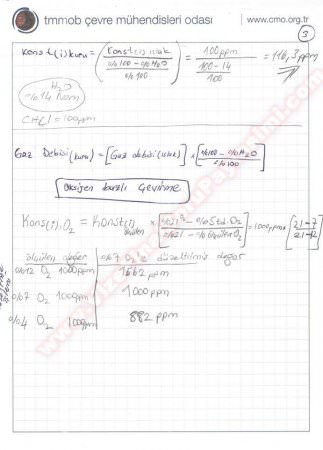 tmmob çevre mühendisleri odası www.cmo.org.tr
3
Konst(i)kuru = (Konst(i)ıslak / (%100 - %H2O / %100)) = 100ppm / (100-14 / 100) = 116,3 ppm
H2O
%14 Nem
CH(i) = 100ppm
Gaz Debisi(kuru) = [Gaz debisi(ıslak)] x [%100 - %H2O / %100]
Oksijen bazlı Çevirme
Kons(i),O2 = Konst(i)ölçülen x [%21 - %Std.O2 / %21 - %ölçülen O2] = 1000ppm x [21-7 / 21-12]
ölçülen değer %7 O2'e düzeltilmiş değer
%12 O2 1000ppm 1562 ppm
%7 O2 1000ppm 1000 ppm
%4 O2 1000ppm 882 ppm